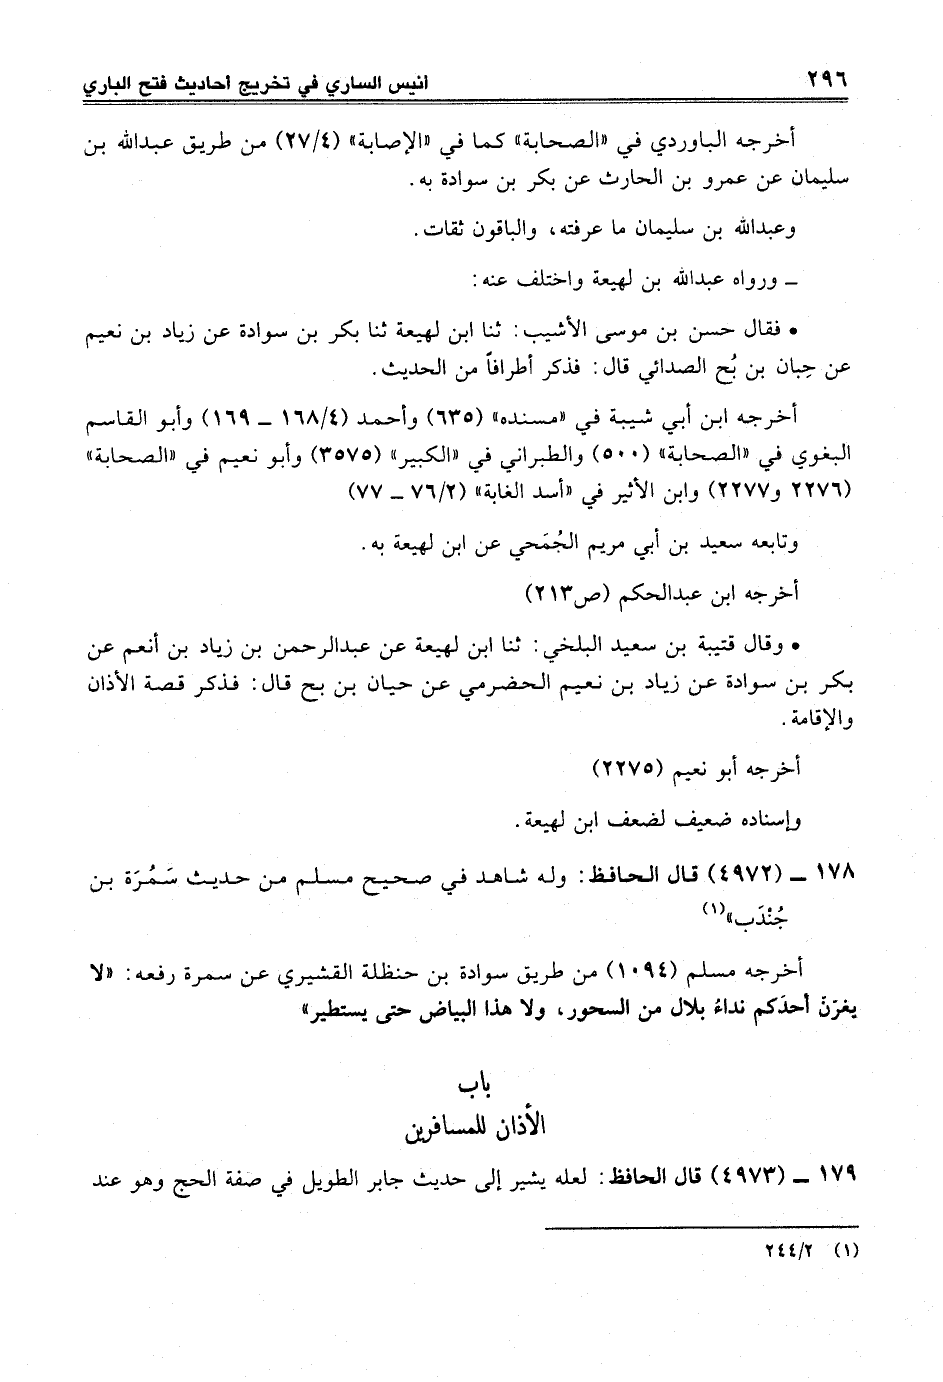 ٢٩٦
أنيس الساري في تخريج أحاديث فتح الباري
أخرجه الباوردي في «الصحابة» كما في «الإصابة» (٢٧/٤) من طريق عبدالله بن
سليمان عن عمرو بن الحارث عن بكر بن سوادة به.
وعبدالله بن سليمان ما عرفته، والباقون ثقات.
ـ ورواه عبدالله بن لهيعة واختلف عنه:
• فقال حسن بن موسى الأشيب: ثنا ابن لهيعة ثنا بكر بن سوادة عن زياد بن نعيم
عن حِبان بن بُح الصدائي قال: فذكر أطرافاً من الحديث.
أخرجه ابن أبي شيبة في «مسنده» (٦٣٥) وأحمد (١٦٨/٤ ـ ١٦٩) وأبو القاسم
البغوي في «الصحابة» (٥٠٠) والطبراني في «الكبير» (٣٥٧٥) وأبو نعيم في «الصحابة»
(٢٢٧٦ و٢٢٧٧) وابن الأثير في «أسد الغابة» (٧٦/٢ ـ ٧٧)
وتابعه سعيد بن أبي مريم الجُمَحي عن ابن لهيعة به.
أخرجه ابن عبدالحكم (ص٢١٣)
• وقال قتيبة بن سعيد البلخي: ثنا ابن لهيعة عن عبدالرحمن بن زياد بن أنعم عن
بكر بن سوادة عن زياد بن نعيم الحضرمي عن حيان بن بح قال: فذكر قصة الأذان
والإقامة.
أخرجه أبو نعيم (٢٢٧٥)
وإسناده ضعيف لضعف ابن لهيعة.
١٧٨ ـ (٤٩٧٢) قال الحافظ: وله شاهد في صحيح مسلم من حديث سَمُرَة بن
جُنْدَب»(١)
أخرجه مسلم (١٠٩٤) من طريق سوادة بن حنظلة القشيري عن سمرة رفعه: «لا
يغرّنّ أحدَكم نداءُ بلال من السحور، ولا هذا البياض حتى يستطير»
باب
الأذان للمسافرين
١٧٩ ـ (٤٩٧٣) قال الحافظ: لعله يشير إلى حديث جابر الطويل في صفة الحج وهو عند
(١) ٢٤٤/٢